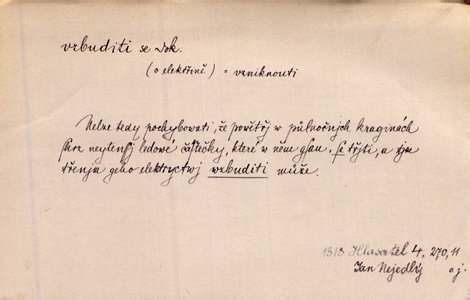 vzbuditi se dok.
(o elektřině) = vzniknouti
Nelze tedy pochybovati, že powětřj w půlnočnjch kraginách
skrz neytenčj ledowé částečky, které w něm gsau. se třjti, a
třenjm geho elektryctwj wzbuditi může.
1818 Hlasatel 4, 270, 11
Jan Nejedlý a j.